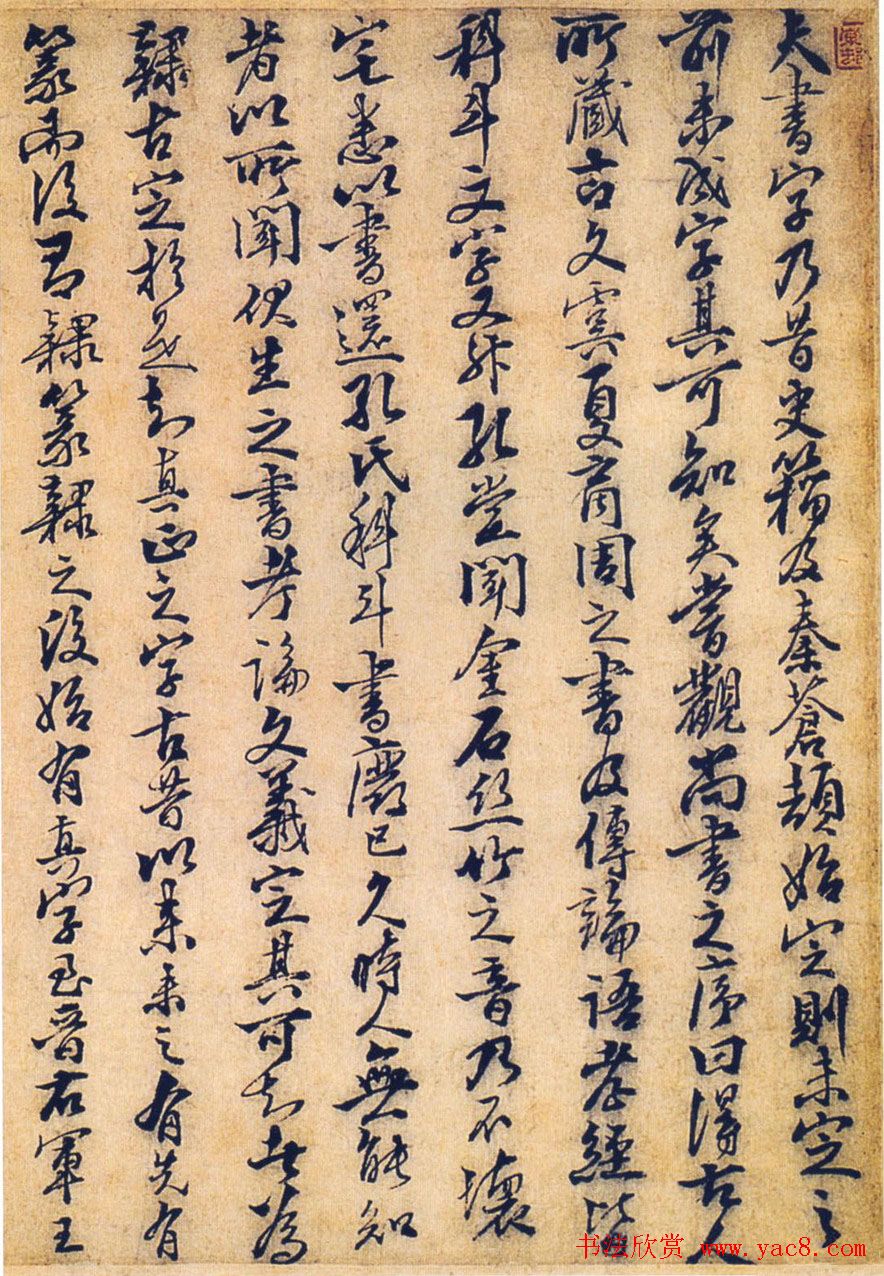 夫書字乃昔史籀及秦蒼頡始定則未定之
前未成字其可知矣嘗觀尚書之序曰得古人
所藏古文虞夏商周之書及傳論語孝經皆
科斗文字又升孔堂聞金石絲竹之音乃不壞
宅悉以書還孔氏科斗書廢已久時人無能知
者以所聞伏生之書考論文義定其可知者為
隸古定於是知真正之字古昔以來未之有先有
篆而後有隸篆隸之後始有真字至晉右軍王
书法欣赏 www.yac8.com